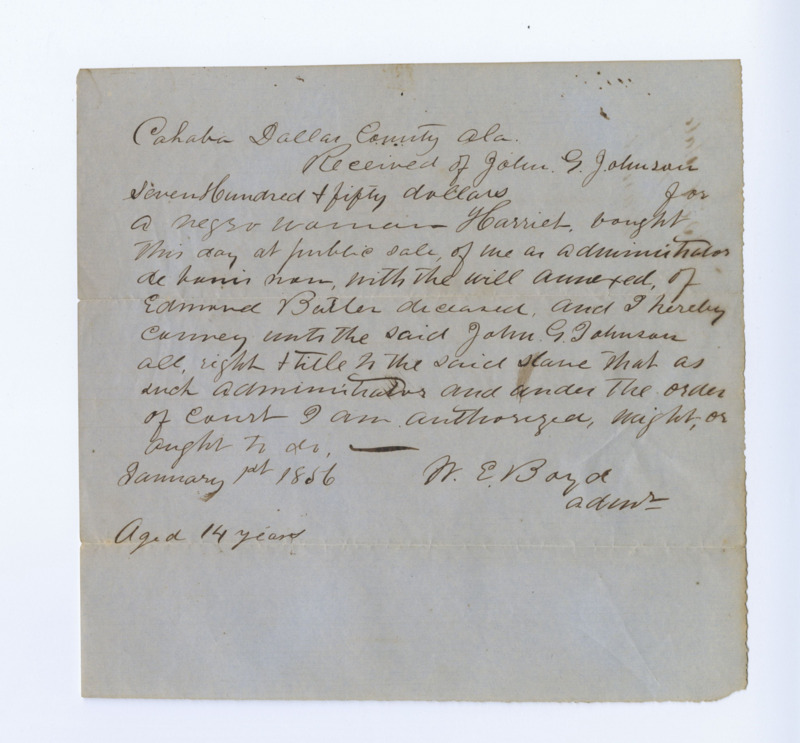 Cahaba Dallas County Ala.
Received of John. G. Johnson
Seven Hundred & fifty dollars for
a negro woman Harriet, bought
this day at public sale, of me as administrator
de bonis non, with the will annexed, of
Edmond Butler deceased, and I hereby
convey unto the said John G. Johnson
all, right & title to the said slave that as
such administrator and under the order
of court I am authorized, might, or
ought to do. —
January 1st 1856 W. E. Boyd
admr
Aged 14 years